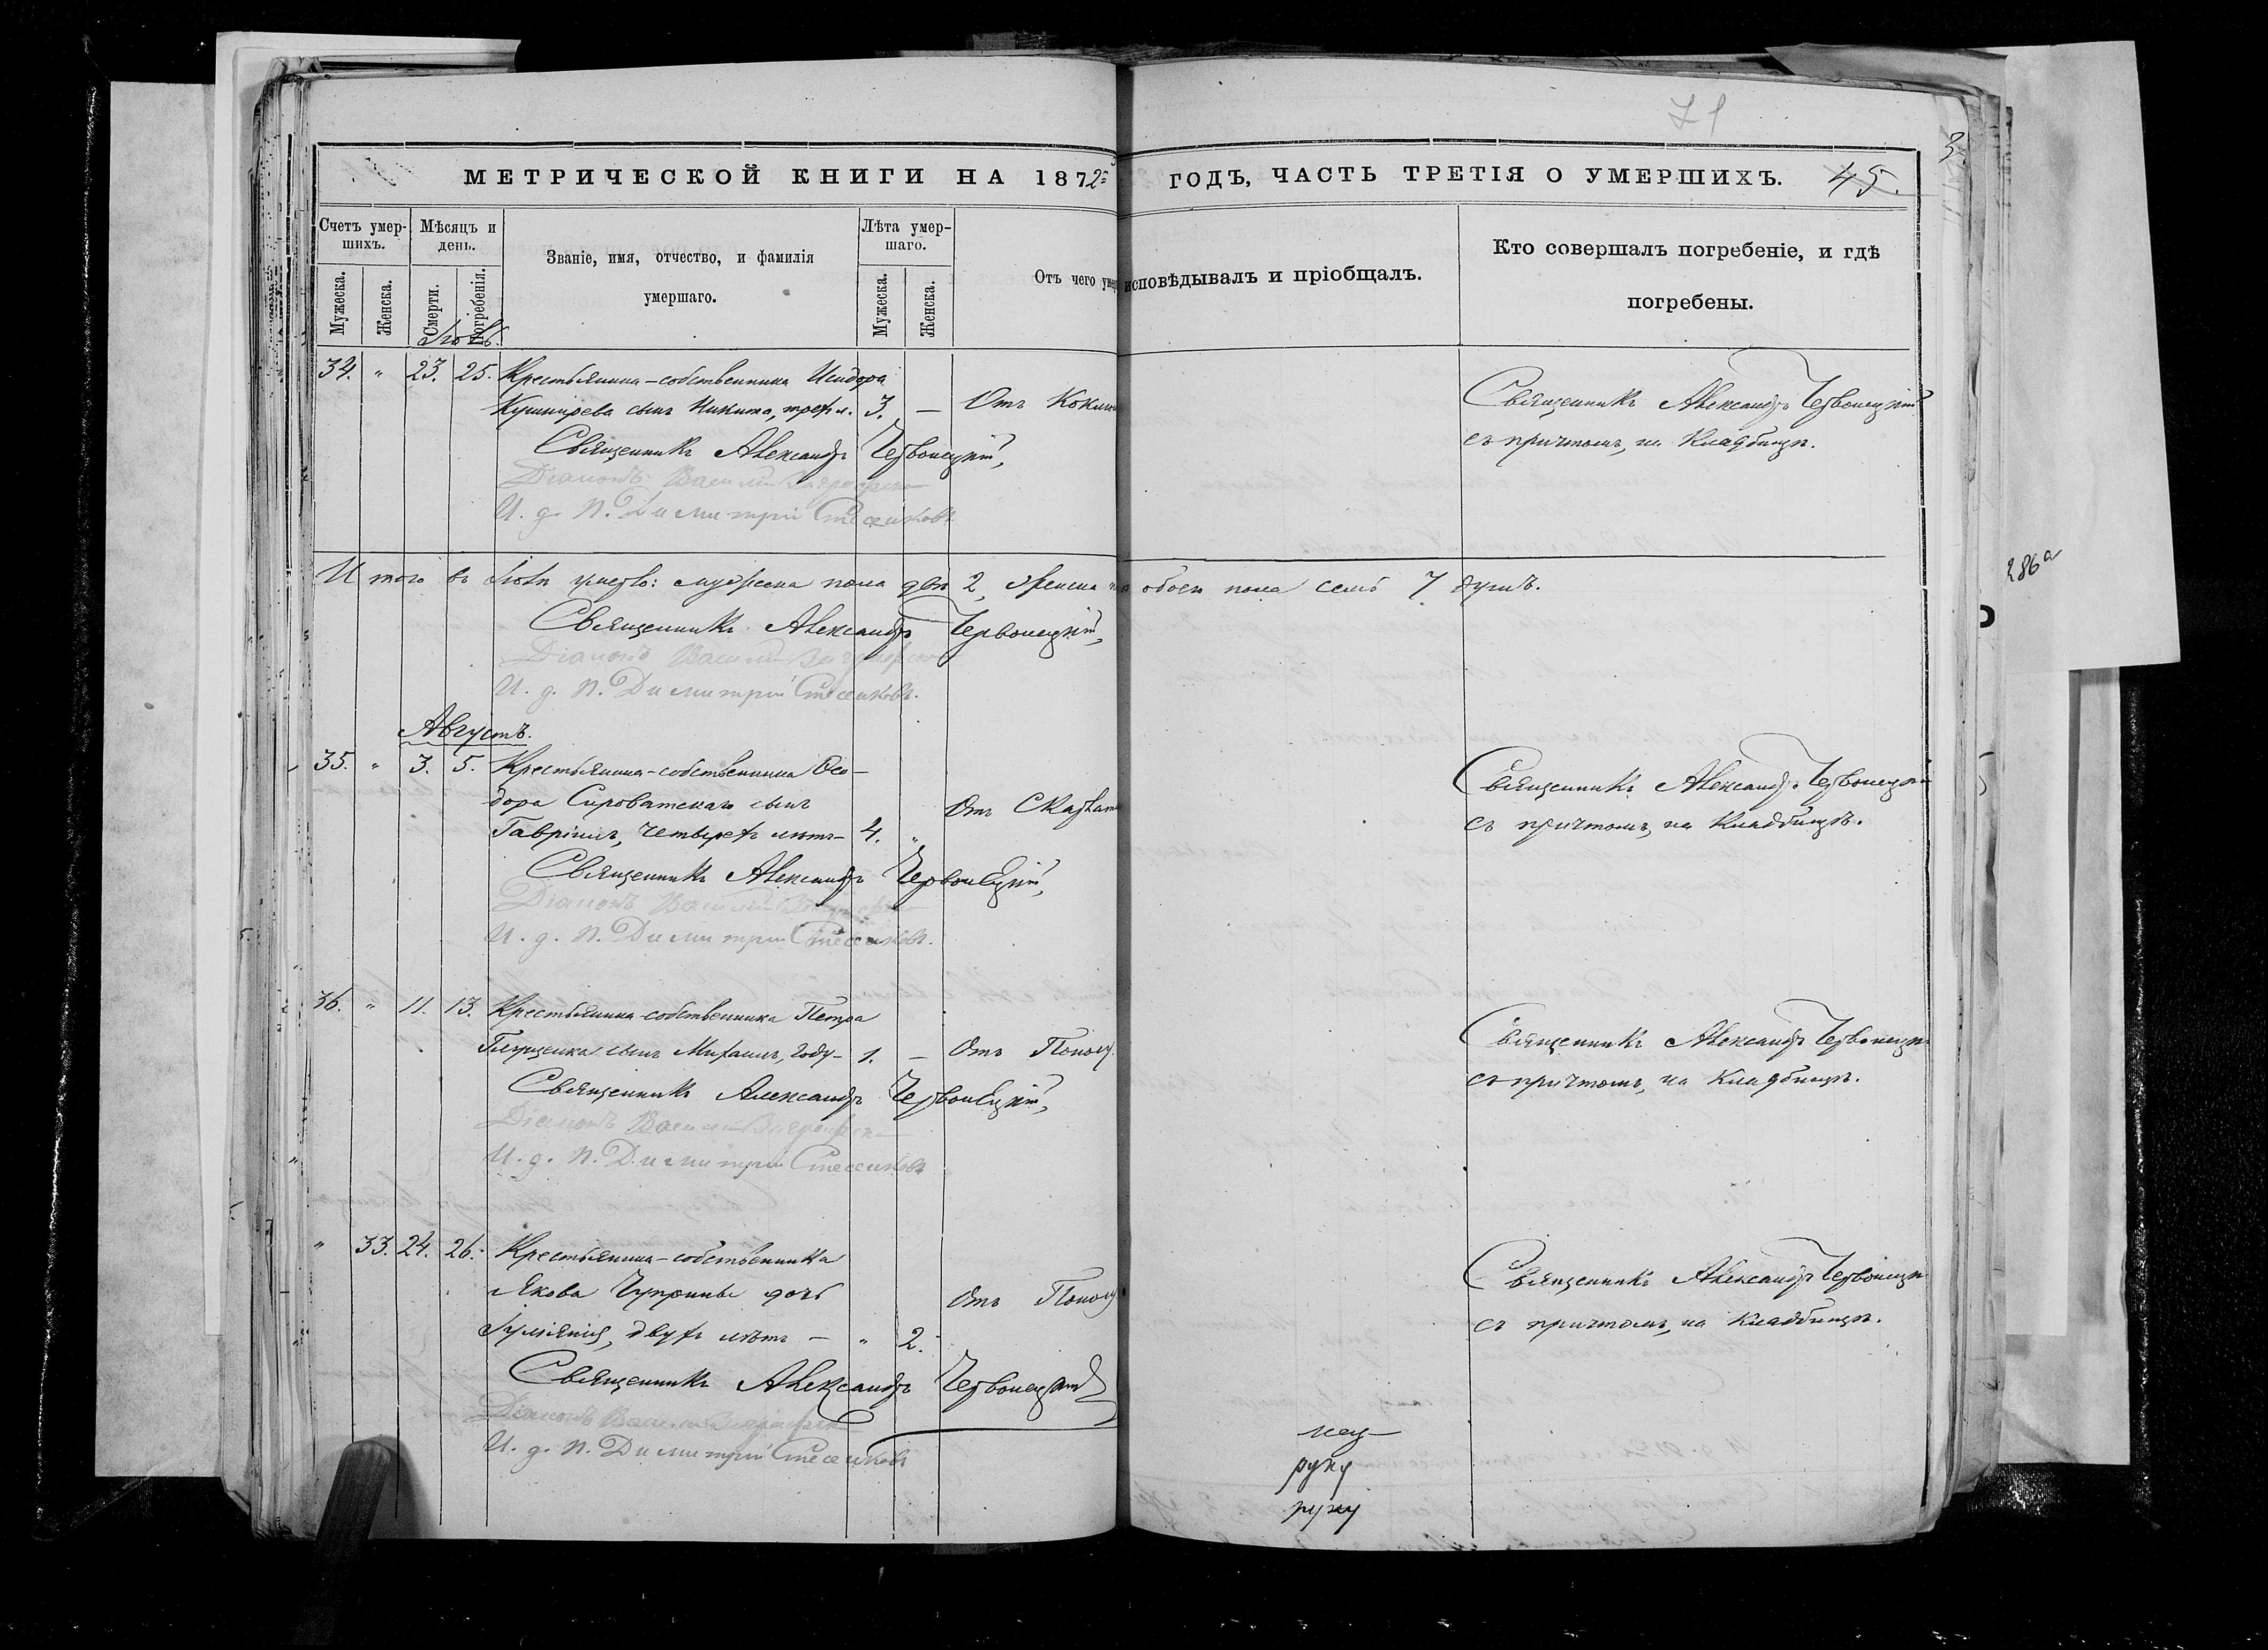 71
МЕТРИЧЕСКОЙ КНИГИ НА 1872 ГОДЪ, ЧАСТЬ ТРЕТІЯ О УМЕРШИХЪ. 45.
Счетъ умер-
шихъ.
Мужеска.
Женска.
Мѣсяцъ и
день.
Смерти.
Погребенія.
Званіе, имя, отчество, и фамилія
умершаго.
Лѣта умер-
шаго.
Мужеска.
Женска.
Отъ чего умер
исповѣдывалъ и пріобщалъ.
Кто совершалъ погребеніе, и гдѣ
погребены.
34. " 23. 25. Крестьянина-собственника Исидора
Кушнирева сынъ Никита, трехъ л. 3. — Отъ
Священникъ Александръ Червонецкій
съ причтомъ, на Кладбищѣ.
Священникъ Александръ Червонецкій,
Діаконъ Василій
И. д. п. Димитрій
Итого въ Іюлѣ умерло: мужеска пола два 2, женска обоего пола семь 7 душъ.
Священникъ Александръ Червонецкій,
Діаконъ Василій
И. д. п. Димитрій
286а
Августъ.
35. " 3. 5. Крестьянина-собственника Ѳео-
дора Сироватскаго сынъ
Гавріилъ, четырехъ лѣтъ — 4. " Отъ
Священникъ Александръ Червонецкій
съ причтомъ, на Кладбищѣ.
Священникъ Александръ Червонецкій,
Діаконъ Василій
И. д. п. Димитрій
36. " 11. 13. Крестьянина-собственника Петра
Глущенка сынъ Михаилъ, году — 1. — Отъ
Священникъ Александръ
съ причтомъ, на Кладбищѣ.
Священникъ Александръ Червонецкій,
Діаконъ Василій
И. д. п. Димитрій
" 33. 24. 26. Крестьянина-собственника
Якова Чуприны дочь
Іуліянія, двухъ лѣтъ — " 2. Отъ
Священникъ Александръ
съ причтомъ, на Кладбищѣ.
Священникъ Александръ Червонецкій
Діаконъ Василій
И. д. п. Димитрій